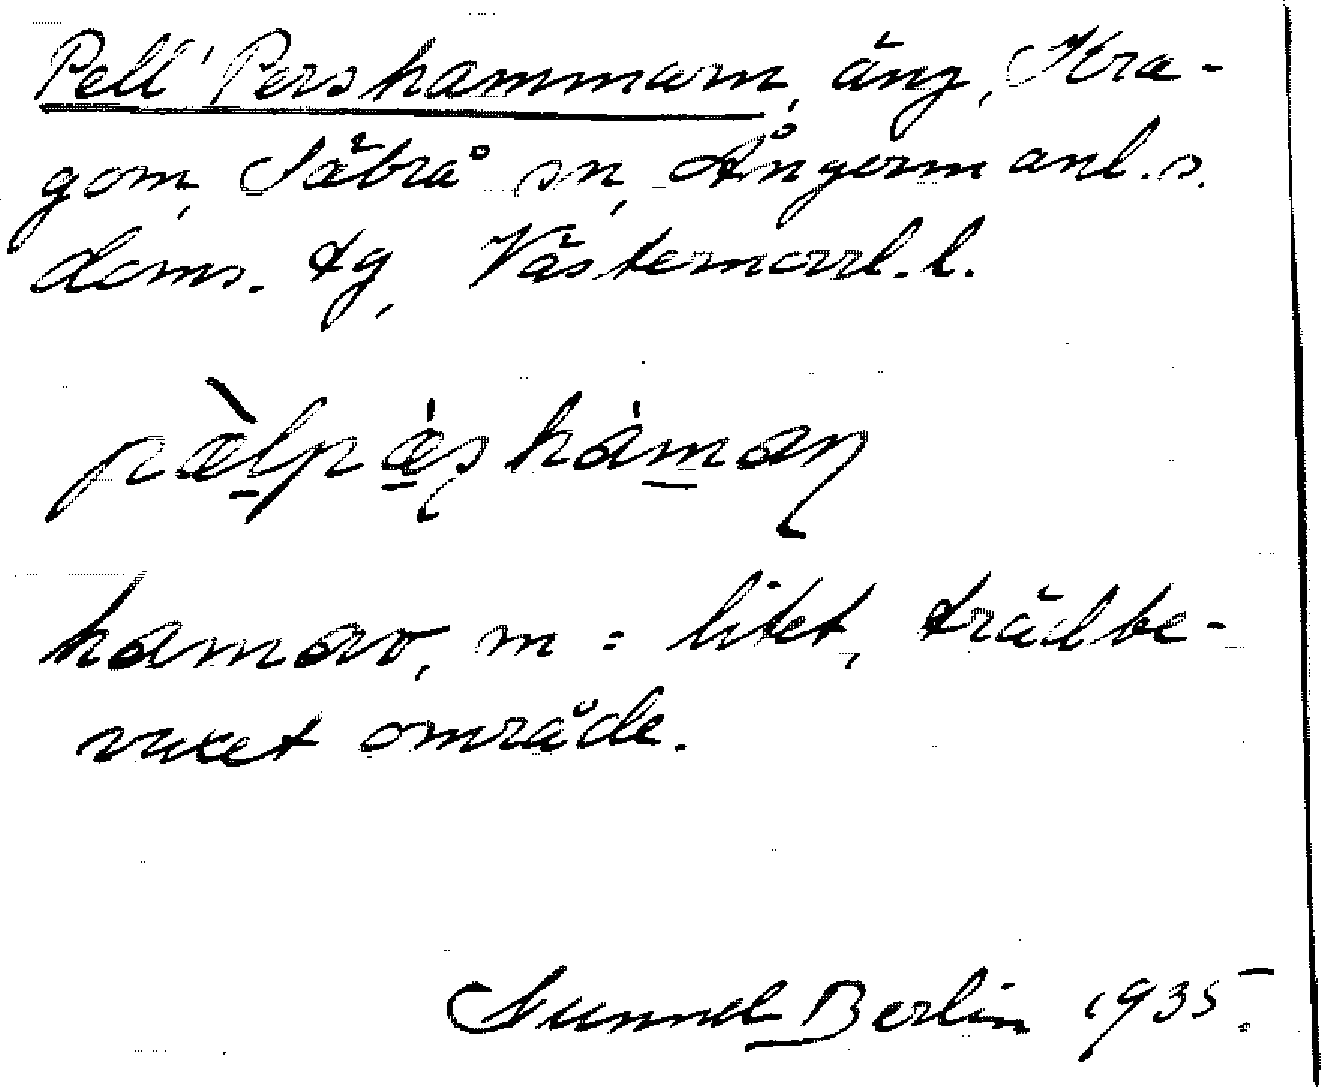 Pell Pershammarn, äng, Kra-
gom, Säbrå sn, Ångermanl. s.
doms. tg, Västernorrl. l.
pæ̀lpæ̇ṣhȧmaṇ
hamar, m = litet, trädbe-
vuxet område.
Sunnd Berlin 1935.